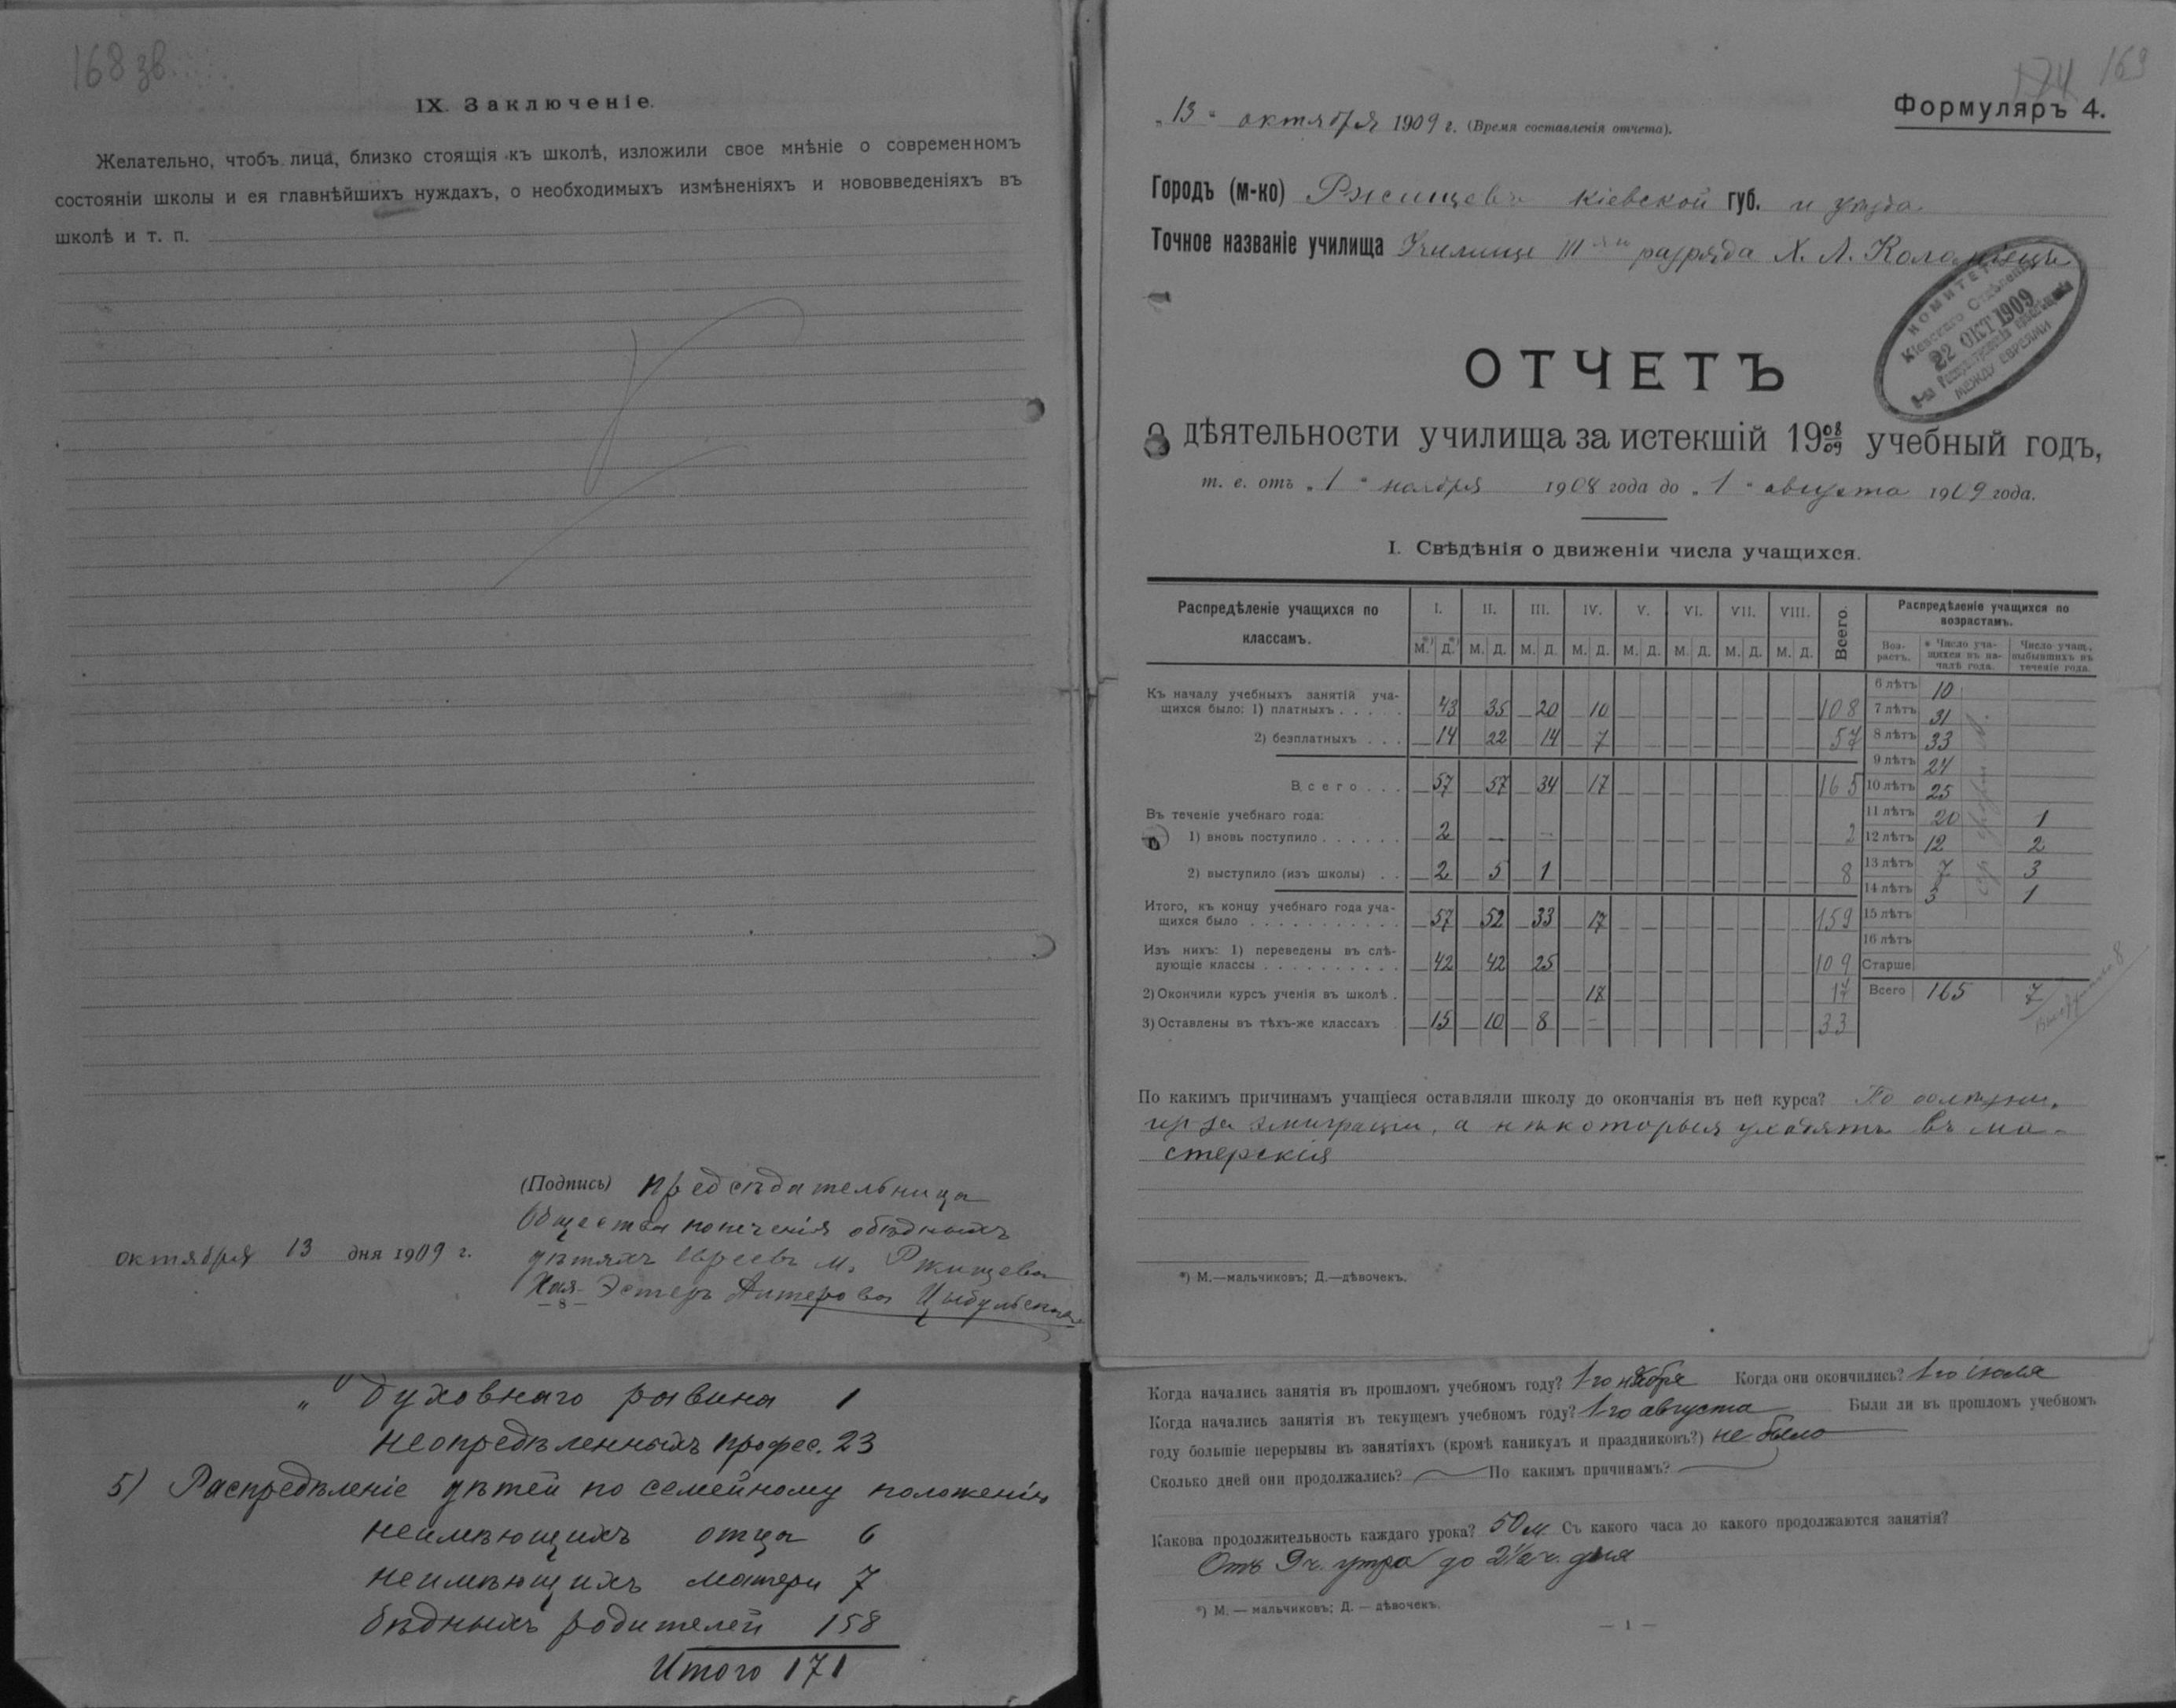 168 зв.
IX. Заключеніе.
Желательно, чтобъ лица, близко стоящія къ школѣ, изложили свое мнѣніе о современномъ
состояніи школы и ея главнѣйшихъ нуждахъ, о необходимыхъ измѣненіяхъ и нововведеніяхъ въ
школѣ и т. п.
(Подпись) предсѣдательница
Общества попеченія обѣдныхъ
октября 13 дня 1909 г.
дѣтяхъ евреевъ м. Ржищева
Хая-Эстеръ Алтерова Цыбульская
— 8 —
" духовнаго равина 1
неопредѣленныхъ профес. 23
5) Распредѣленіе дѣтей по семейному положенію
неимѣющихъ отца 6
неимѣющихъ матери 7
бѣдныхъ родителей 158
Итого 171
174 169
Формуляръ 4.
„ 13 " октября 1909 г. (Время составленія отчета).
Городъ (м-ко) Ржищевъ Кіевской губ. и уѣзда
Точное названіе училища Училище III разряда Х. Л. Коломѣйци
КОМИТЕТЪ
Кіевскаго Отдѣленія
22 ОКТ 1909
О-ва Распространенія просвѣщенія
МЕЖДУ ЕВРЕЯМИ
ОТЧЕТЪ
о дѣятельности училища за истекшій 19 08/09 учебный годъ,
т. е. отъ „ 1 " ноября 1908 года до „ 1 " августа 1909 года.
I. Свѣдѣнія о движеніи числа учащихся.
Распредѣленіе учащихся по классамъ. I. II. III. IV. V. VI. VII. VIII. Всего.
М.*) Д.*) М. Д. М. Д. М. Д. М. Д. М. Д. М. Д. М. Д.
Къ началу учебныхъ занятій уча-
щихся было: 1) платныхъ . . . . . 43 35 20 10 108
2) безплатныхъ . . . 14 22 14 7 57
Всего . . . 57 57 34 17 165
Въ теченіе учебнаго года:
1) вновь поступило . . . . . . 2 — — 2
2) выступило (изъ школы) . . 2 5 1 8
Итого, къ концу учебнаго года уча-
щихся было . . . . . . . . . . . 57 52 33 17 159
Изъ нихъ: 1) переведены въ слѣ-
дующіе классы . . . . . . . . . . 42 42 25 109
2) Окончили курсъ ученія въ школѣ . 17 17
3) Оставлены въ тѣхъ-же классахъ 15 10 8 — 33
Распредѣленіе учащихся по
возрастамъ.
Воз-
растъ. * Число уча-
щихся въ на-
чалѣ года. Число учащ.,
выбывшихъ въ
теченіе года.
6 лѣтъ 10
7 лѣтъ 31
8 лѣтъ 33
9 лѣтъ 24
10 лѣтъ 25
11 лѣтъ 20 1
12 лѣтъ 12 2
13 лѣтъ 7 3
14 лѣтъ 3 1
15 лѣтъ
16 лѣтъ
Старше
Всего 165 7
По какимъ причинамъ учащіеся оставляли школу до окончанія въ ней курса? По болѣзни,
из-за эмиграціи, а нѣкоторыя уходятъ въ ма-
стерскія
*) М.—мальчиковъ; Д.—дѣвочекъ.
Когда начались занятія въ прошломъ учебномъ году? 1-го ноября Когда они окончились? 1-го іюля
Когда начались занятія въ текущемъ учебномъ году? 1-го августа Были ли въ прошломъ учебномъ
году большіе перерывы въ занятіяхъ (кромѣ каникулъ и праздниковъ?) не было
Сколько дней они продолжались? — По какимъ причинамъ? —
Какова продолжительность каждаго урока? 50 м. Съ какого часа до какого продолжаются занятія?
Отъ 9 ч. утра до 2½ ч. дня
*) М. — мальчиковъ; Д. — дѣвочекъ.
— 1 —